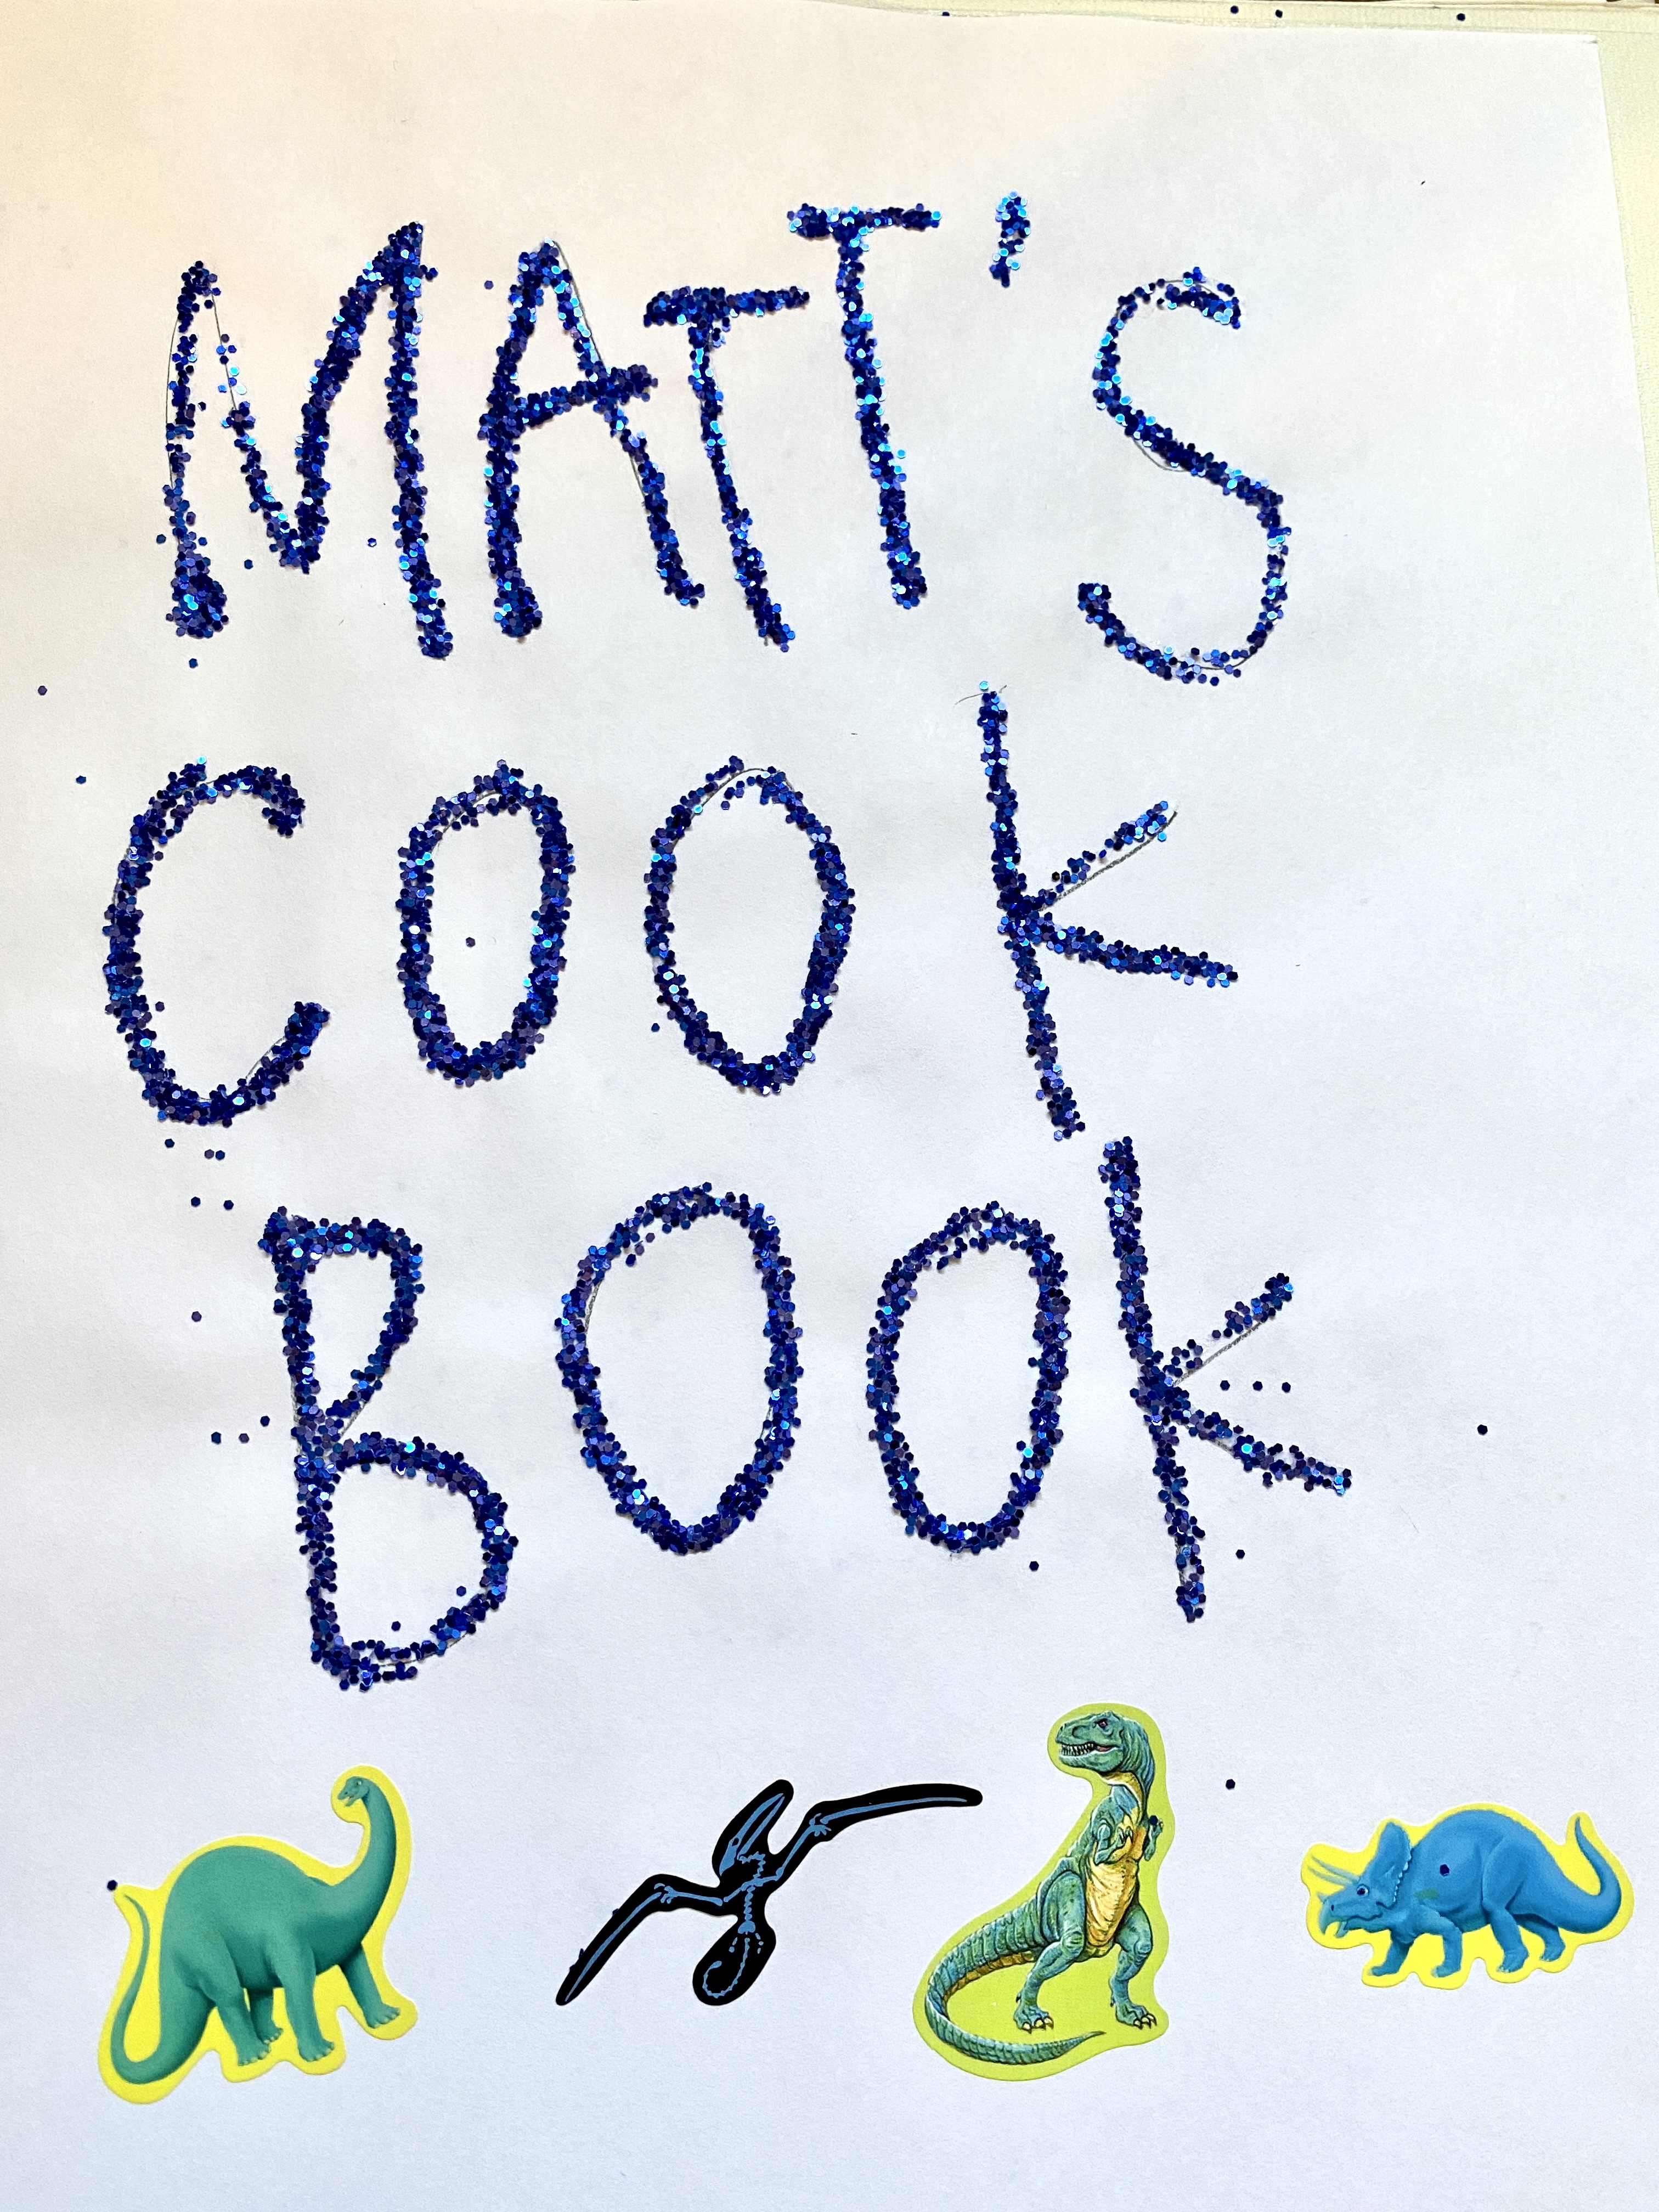 MATT'S
COOK
BOOK